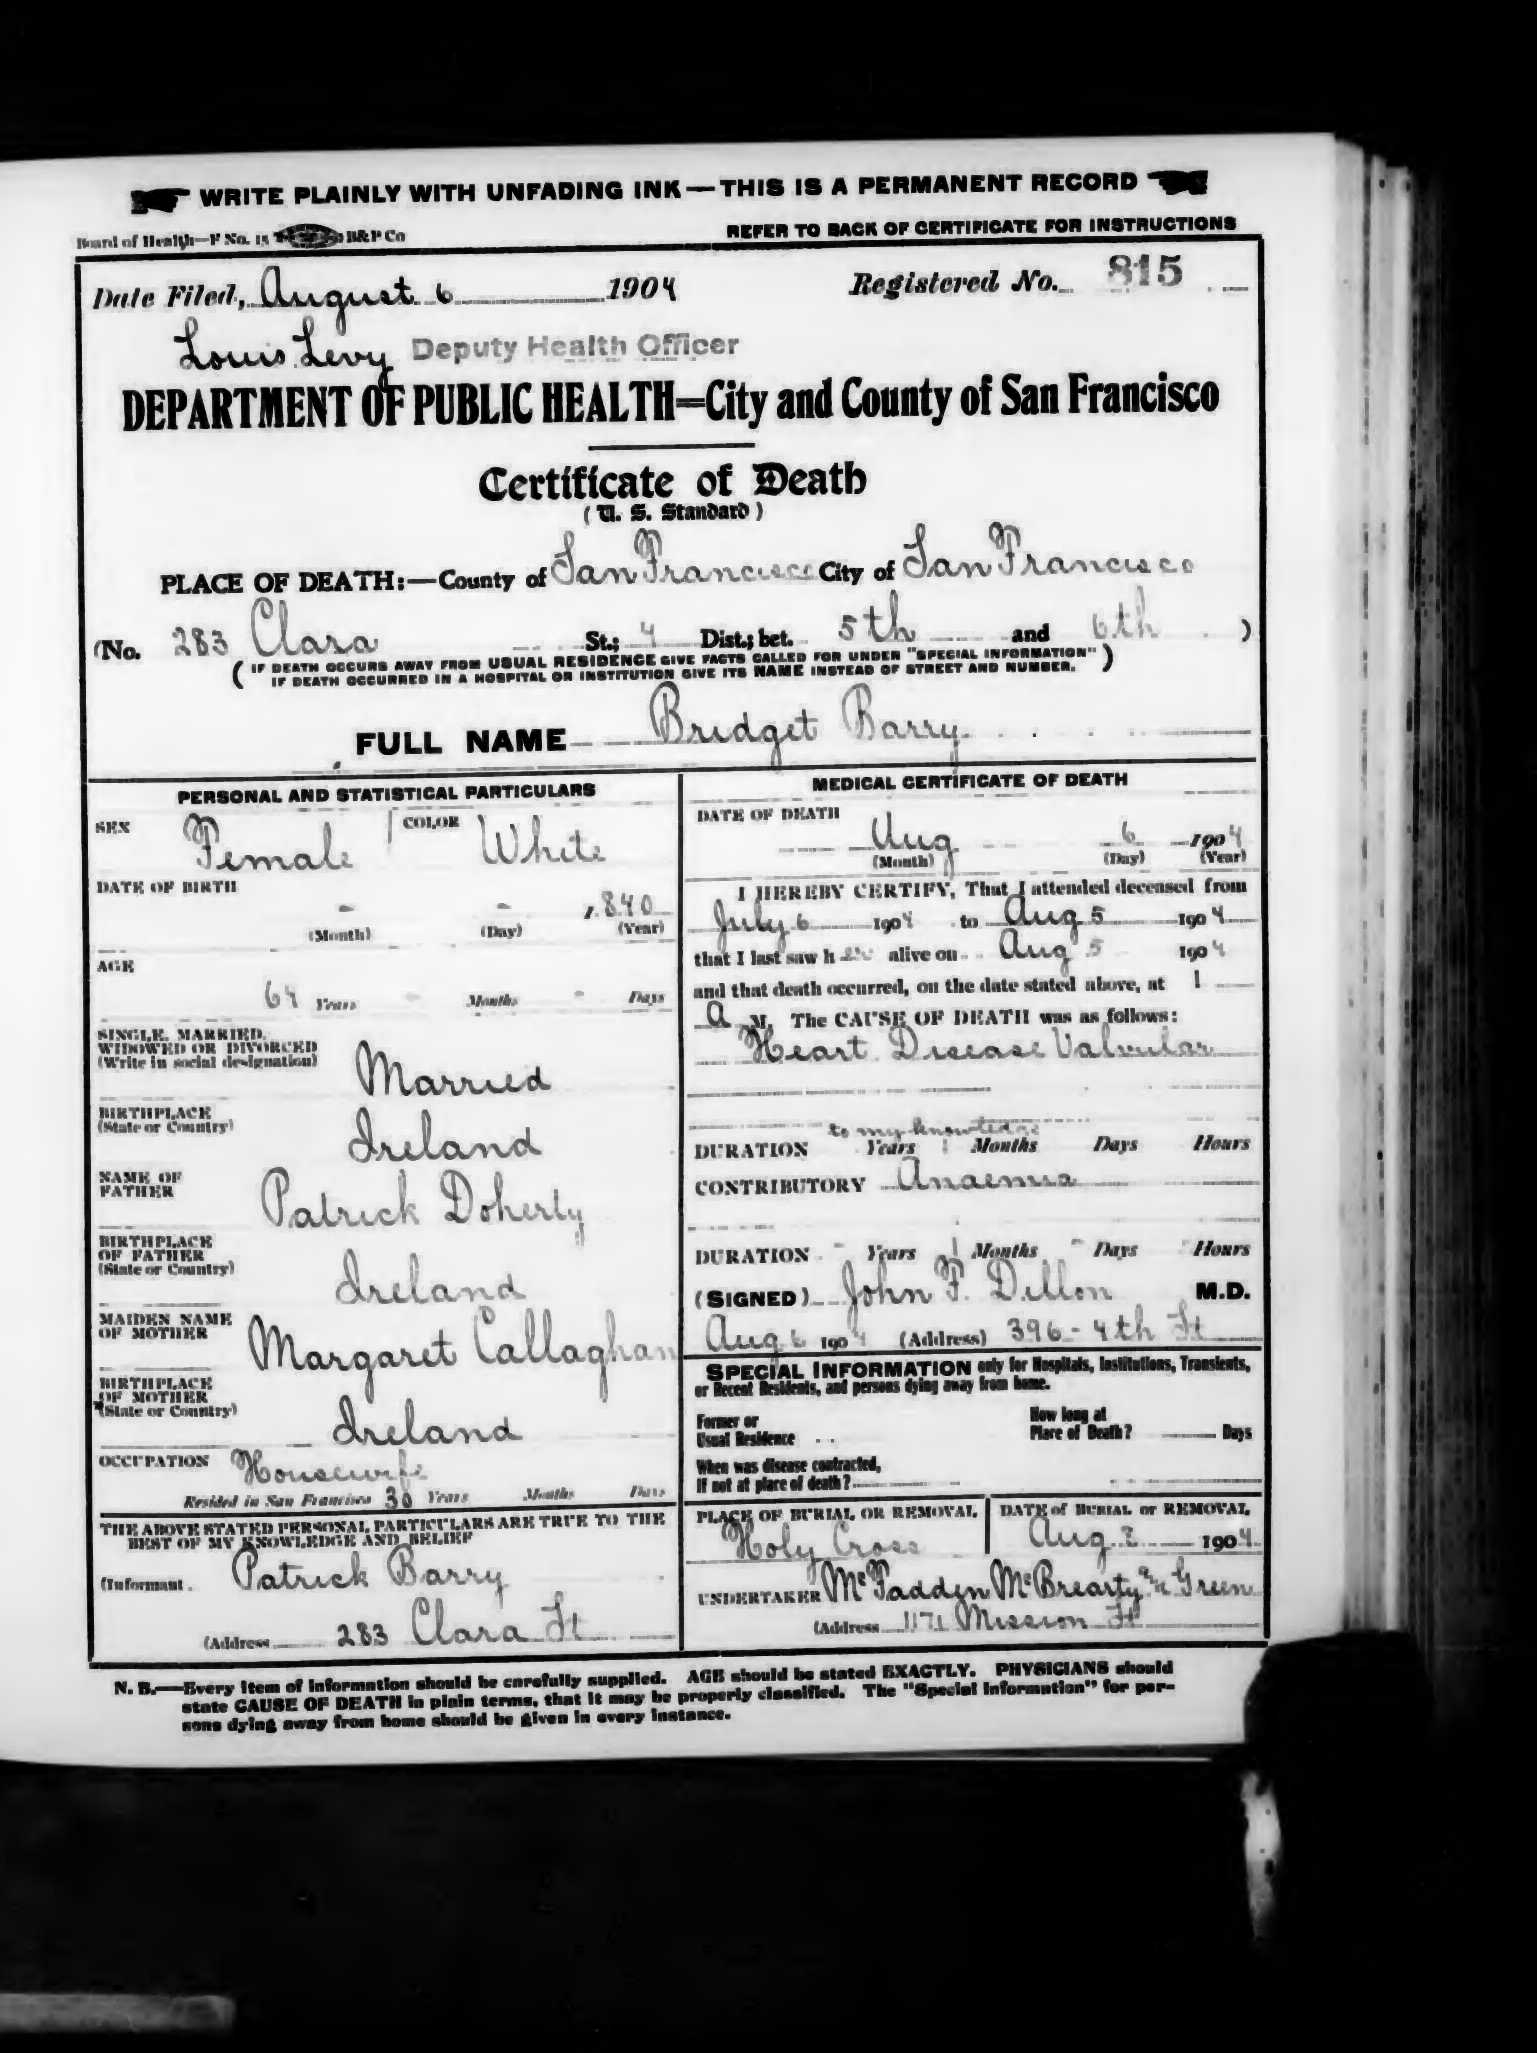 WRITE PLAINLY WITH UNFADING INK—THIS IS A PERMANENT RECORD
Board of Health—F No. 15 B&P Co
REFER TO BACK OF CERTIFICATE FOR INSTRUCTIONS
Date Filed, August 6 1904 Registered No. 815
Louis Levy Deputy Health Officer
DEPARTMENT OF PUBLIC HEALTH=City and County of San Francisco
Certificate of Death
(U. S. Standard)
PLACE OF DEATH:—County of San Francisco City of San Francisco
(No. 283 Clara St.; 4 Dist.; bet. 5th and 6th )
( IF DEATH OCCURS AWAY FROM USUAL RESIDENCE GIVE FACTS CALLED FOR UNDER "SPECIAL INFORMATION" )
IF DEATH OCCURRED IN A HOSPITAL OR INSTITUTION GIVE ITS NAME INSTEAD OF STREET AND NUMBER.
FULL NAME Bridget Barry
PERSONAL AND STATISTICAL PARTICULARS
SEX Female COLOR White
DATE OF BIRTH
- - 1840
(Month) (Day) (Year)
AGE
64 Years - Months - Days
SINGLE, MARRIED,
WIDOWED OR DIVORCED
(Write in social designation)
Married
BIRTHPLACE
(State or Country)
Ireland
NAME OF
FATHER
Patrick Doherty
BIRTHPLACE
OF FATHER
(State or Country)
Ireland
MAIDEN NAME
OF MOTHER
Margaret Callaghan
BIRTHPLACE
OF MOTHER
(State or Country)
Ireland
OCCUPATION Housewife
Resided in San Francisco 30 Years Months Days
THE ABOVE STATED PERSONAL PARTICULARS ARE TRUE TO THE
BEST OF MY KNOWLEDGE AND BELIEF
(Informant Patrick Barry
(Address 283 Clara St
MEDICAL CERTIFICATE OF DEATH
DATE OF DEATH
Aug 6 1904
(Month) (Day) (Year)
I HEREBY CERTIFY, That I attended deceased from
July 6 1904 to Aug 5 1904
that I last saw her alive on Aug 5 1904
and that death occurred, on the date stated above, at 1
A M. The CAUSE OF DEATH was as follows:
Heart Disease Valvular
to my knowledge
DURATION Years 1 Months Days Hours
CONTRIBUTORY Anaemia
DURATION - Years 1 Months - Days - Hours
(SIGNED) John F. Dillon M.D.
Aug 6 1904 (Address) 396-4th St
SPECIAL INFORMATION only for Hospitals, Institutions, Transients,
or Recent Residents, and persons dying away from home.
Former or
Usual Residence
How long at
Place of Death? Days
When was disease contracted,
If not at place of death?
PLACE OF BURIAL OR REMOVAL
Holy Cross
DATE of BURIAL or REMOVAL
Aug 8 1904
UNDERTAKER McFadden McBrearty & Green
(Address 1171 Mission St
N. B.—Every item of information should be carefully supplied. AGE should be stated EXACTLY. PHYSICIANS should
state CAUSE OF DEATH in plain terms, that it may be properly classified. The "Special Information" for per-
sons dying away from home should be given in every instance.